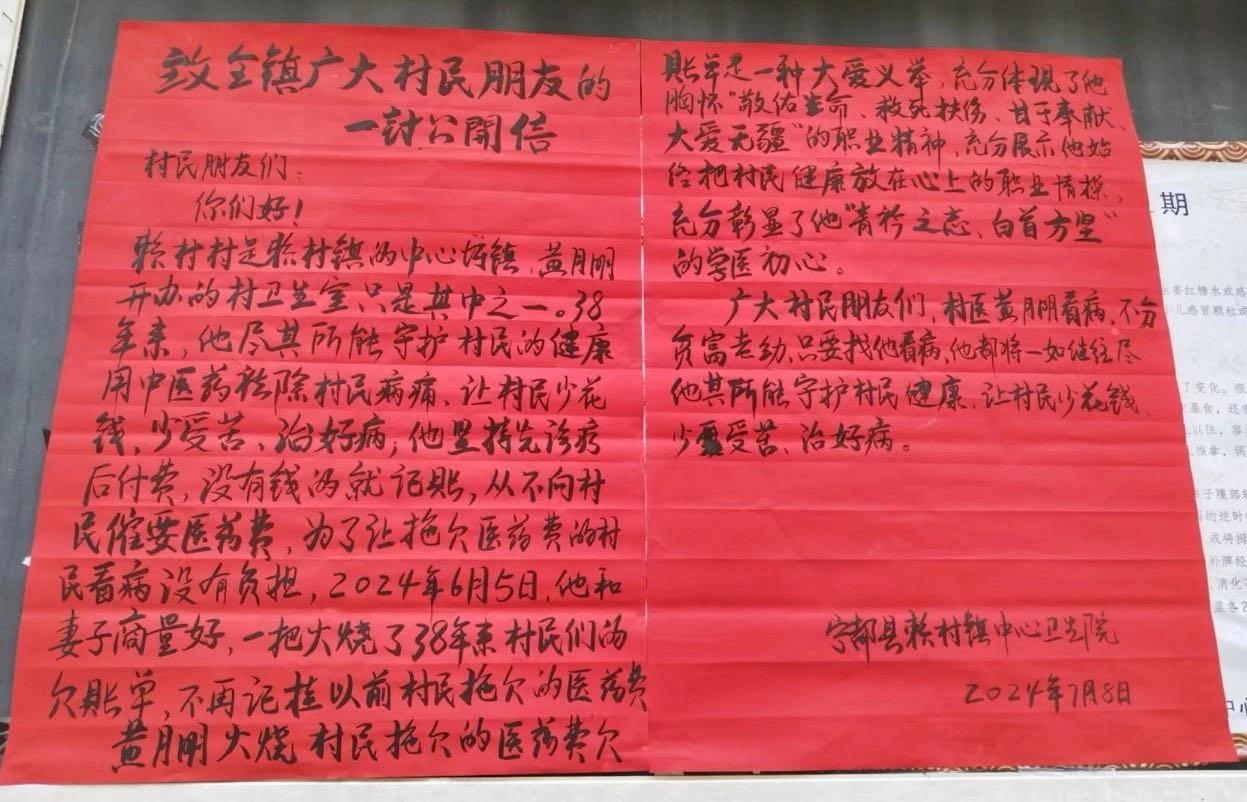 致全镇广大村民朋友的
一封公開信
村民朋友们:
你们好!
赖村村是赖村镇的中心圩镇,黄月明
开办的村卫生室只是其中之一。38
年来,他尽其所能守护村民的健康
用中医药祛除村民病痛、让村民少花
钱、少受苦、治好病;他坚持先诊疗
后付费,没有钱的就记账,从不向村
民催要医药费,为了让拖欠医药费的村
民看病没有负担,2024年6月5日,他和
妻子商量好,一把火烧了38年来村民们的
欠账单,不再记挂以前村民拖欠的医药费
黄月明火烧村民拖欠的医药费欠
账单是一种大爱义举,充分体现了他
胸怀"敬佑生命、救死扶伤、甘于奉献、
大爱无疆"的职业精神,充分展示他始
终把村民健康放在心上的职业情操,
充分彰显了他"青衿之志、白首方坚"
的学医初心。
广大村民朋友们,村医黄月明看病,不分
贫富老幼,只要找他看病,他都将一如继往尽
他其所能守护村民健康,让村民少花钱、
少受苦、治好病。
宁都县赖村镇中心卫生院
2024年7月8日
期
小儿感冒颗粒或
了变化。很
暴食,还
以往,容
推拿,调
孩子腹部
的逆时
或将拇
补脾经
消化
里各
中心